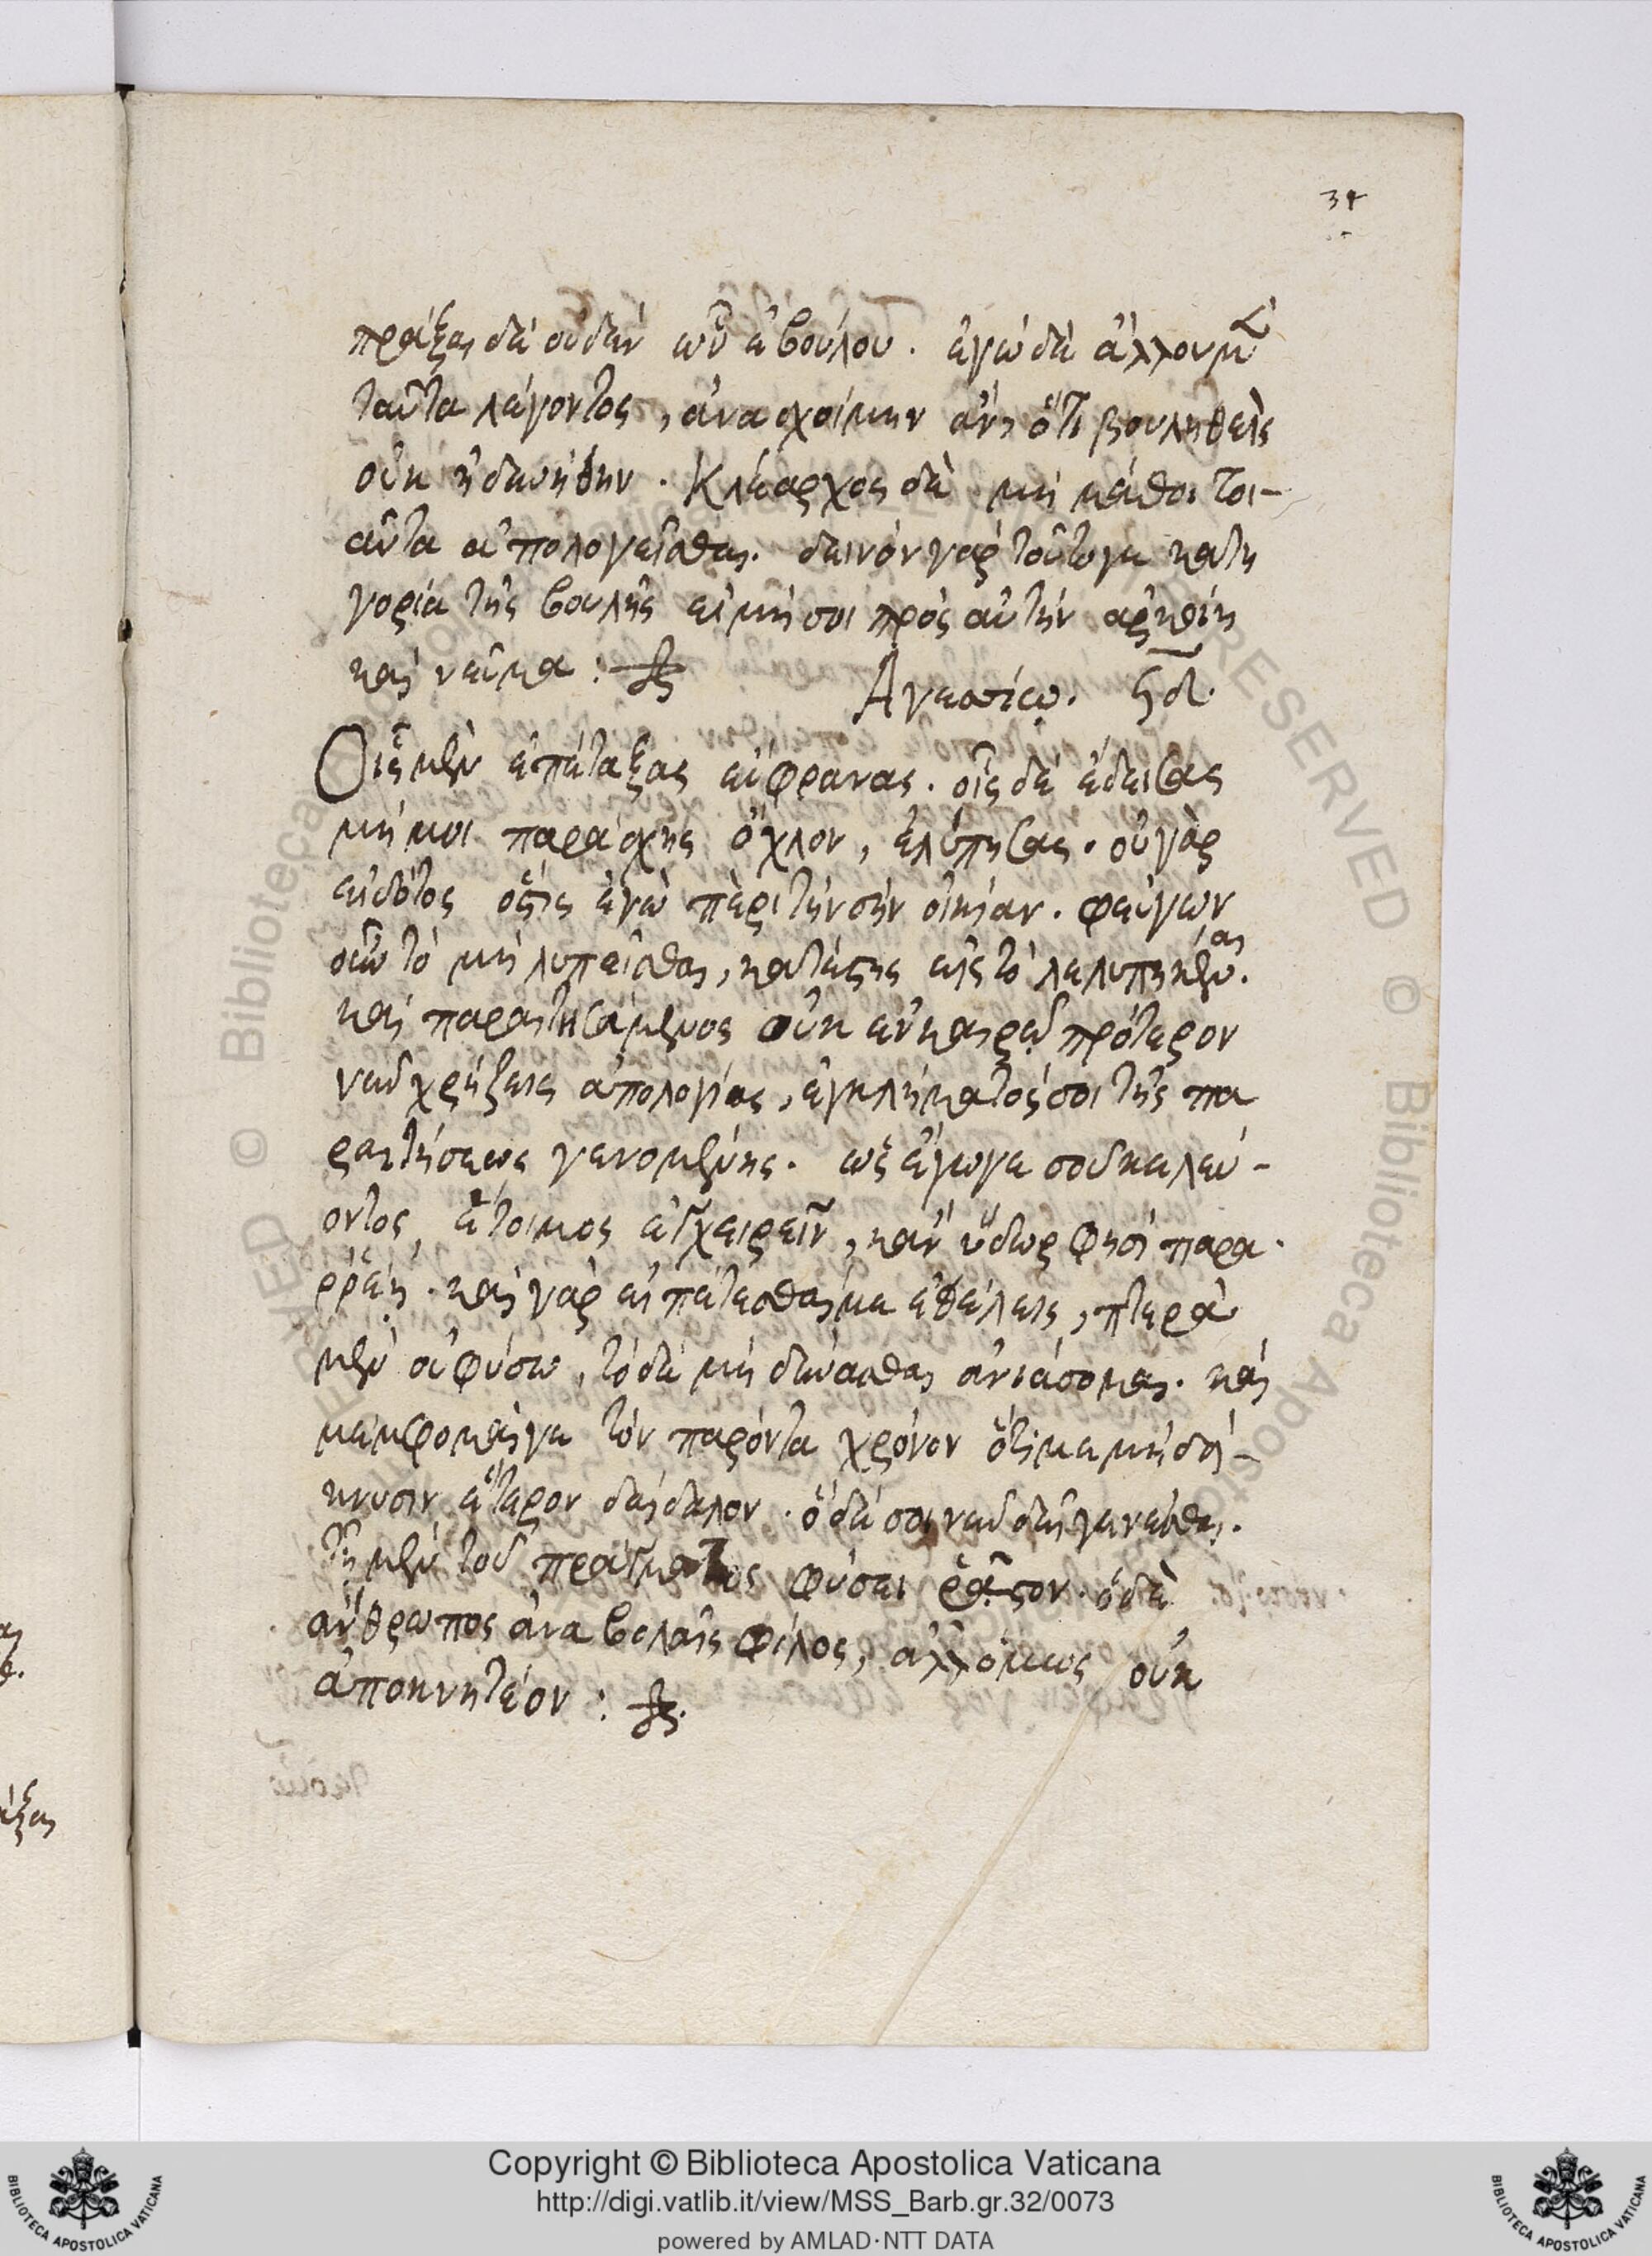 34
πράξαι δὲ οὐδὲν ὧν ἐβούλου. ἐγὼ δὲ ἄλλου μὲν
ταῦτα λέγοντος, ἀνασχοίμην ἂν, ὅτι βουληθεὶς
οὐκ ἠδυνήθην. Κλέαρχος δὲ μὴ μάθοι τοι-
αῦτα ἀπολογεῖσθαι. δεινὸν γὰρ τοῦτό γε κατη
γορία τῆς βουλῆς εἰ μή σοι πρὸς αὐτὴν ἀρκοίη
καὶ νεῦμα :
Ἀγεσίῳ.
Οἷς μὲν ἐπέταξας εὔφρανας. οἷς δὲ ἔδεισας
μή μοι παράσχῃς ὄχλον, ἐλύπησας. οὐ γὰρ
εἰδότος ὅστις ἐγὼ περὶ τὴν σὴν οἰκίαν. φεύγων
οὖν τὸ μὴ λυπεῖσθαι, κατέστης εἰς τὸ λελυπηκέναι.
καὶ παραιτησάμενος οὐκ ἐν καιρῷ πρότερον
νῦν χρῄζεις ἀπολογίας, ἐγκλήματός σοι τῆς πα
ραιτήσεως γενομένης. ὡς ἔγωγε σοῦ κελεύ-
οντος, ἕτοιμος ἐγχειρεῖν, κἂν ὕδωρ φησὶ παρα
ρρέῃ. καὶ γὰρ εἰ πέτεσθαί με ἐθέλεις, πτερὰ
μὲν οὐ φύσω, τὸ δὲ μὴ δύνασθαι ἀνιάσομαι. καὶ
μέμφομαί γε τὸν παρόντα χρόνον ὅτι με μὴ δεί-
κνυσιν ἕτερον δαίδαλον. ὃ δέ σοι νῦν δεῖ γενέσθαι.
τῇ μὲν τοῦ πράγματος φύσει ῥᾷστον. ὁ δὲ
ἄνθρωπος ἀναβολαῖς φίλος, ἀλλ' ὅμως οὐκ
ἀποκνητέον :
Copyright © Biblioteca Apostolica Vaticana
http://digi.vatlib.it/view/MSS_Barb.gr.32/0073
powered by AMLAD·NTT DATA